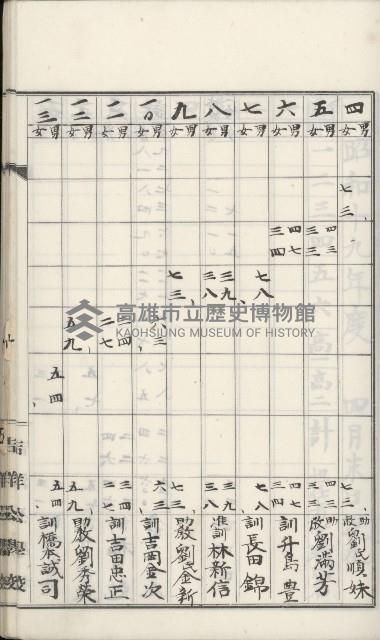 四 男女 七三 七三 助教 劉氏順妹
五 男女 四三 三三 四三 三三 助教 劉滿芳
六 男女 四七 三四 四七 三四 訓 豊
七 男女 七八 七八 訓 長田錦
八 男女 三九 三八 三九 三八 准訓 林新信
九 男女 七三 七三 助教 劉金新
一〇 男女 六三 六三 訓 吉岡金次
一一 男女 三四 二七 三四 二七 訓 吉田忠正
一二 男女 五九 五九 助教 劉秀榮
一三 男女 五四 五四 訓 橋本誠司
高雄市立歷史博物館
KAOHSIUNG MUSEUM OF HISTORY